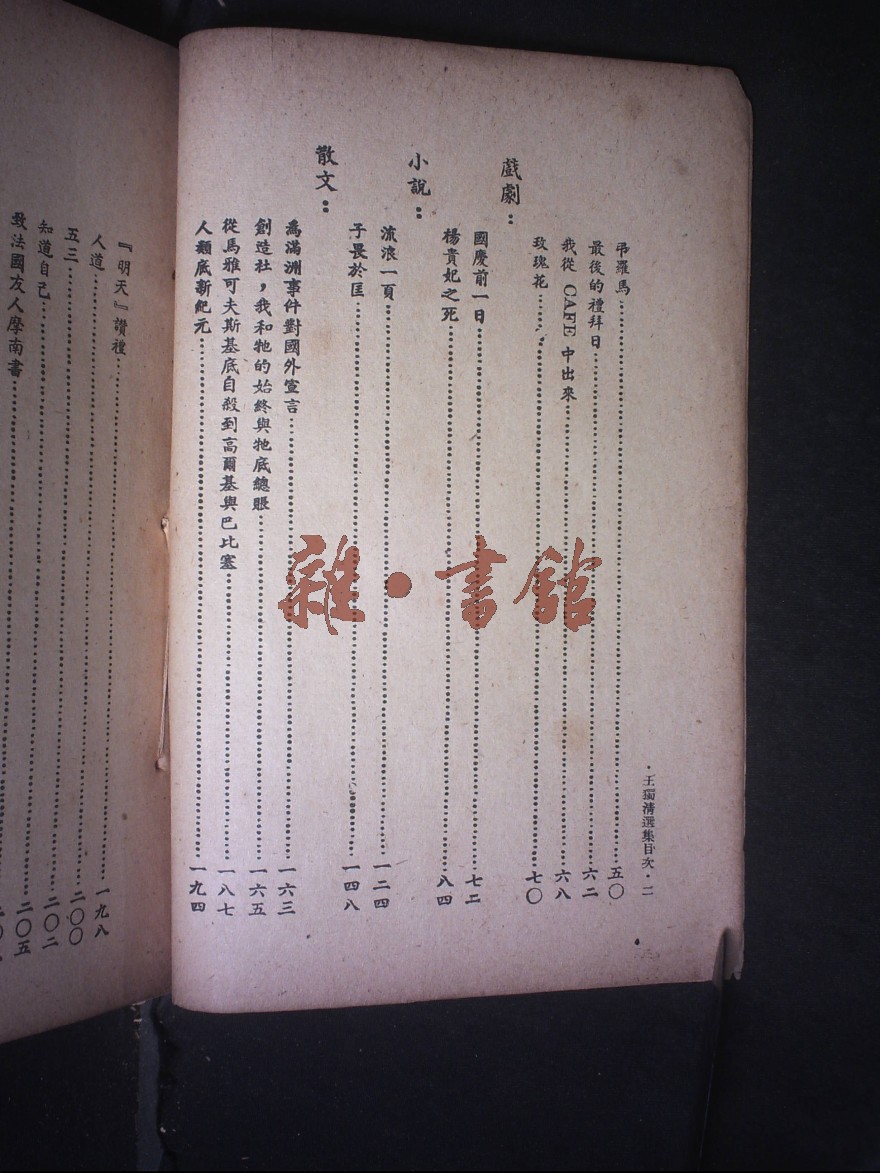 ·王獨淸選集目次·二
弔羅馬……五〇
最後的禮拜日……六二
我從 CAFE 中出來……六八
玫瑰花……七〇
戲劇：
國慶前一日……七二
楊貴妃之死……八四
小說：
流浪一頁……一二四
子畏於匡……一四八
散文：
爲滿洲事件對國外宣言……一六三
創造社，我和牠的始終與牠底總賬……一六五
從馬雅可夫斯基底自殺到高爾基與巴比塞……一八七
人類底新紀元……一九四
『明天』讚禮……一九八
人道……二〇〇
五三……二〇二
知道自己……二〇五
致法國友人摩南書……
雜·書館